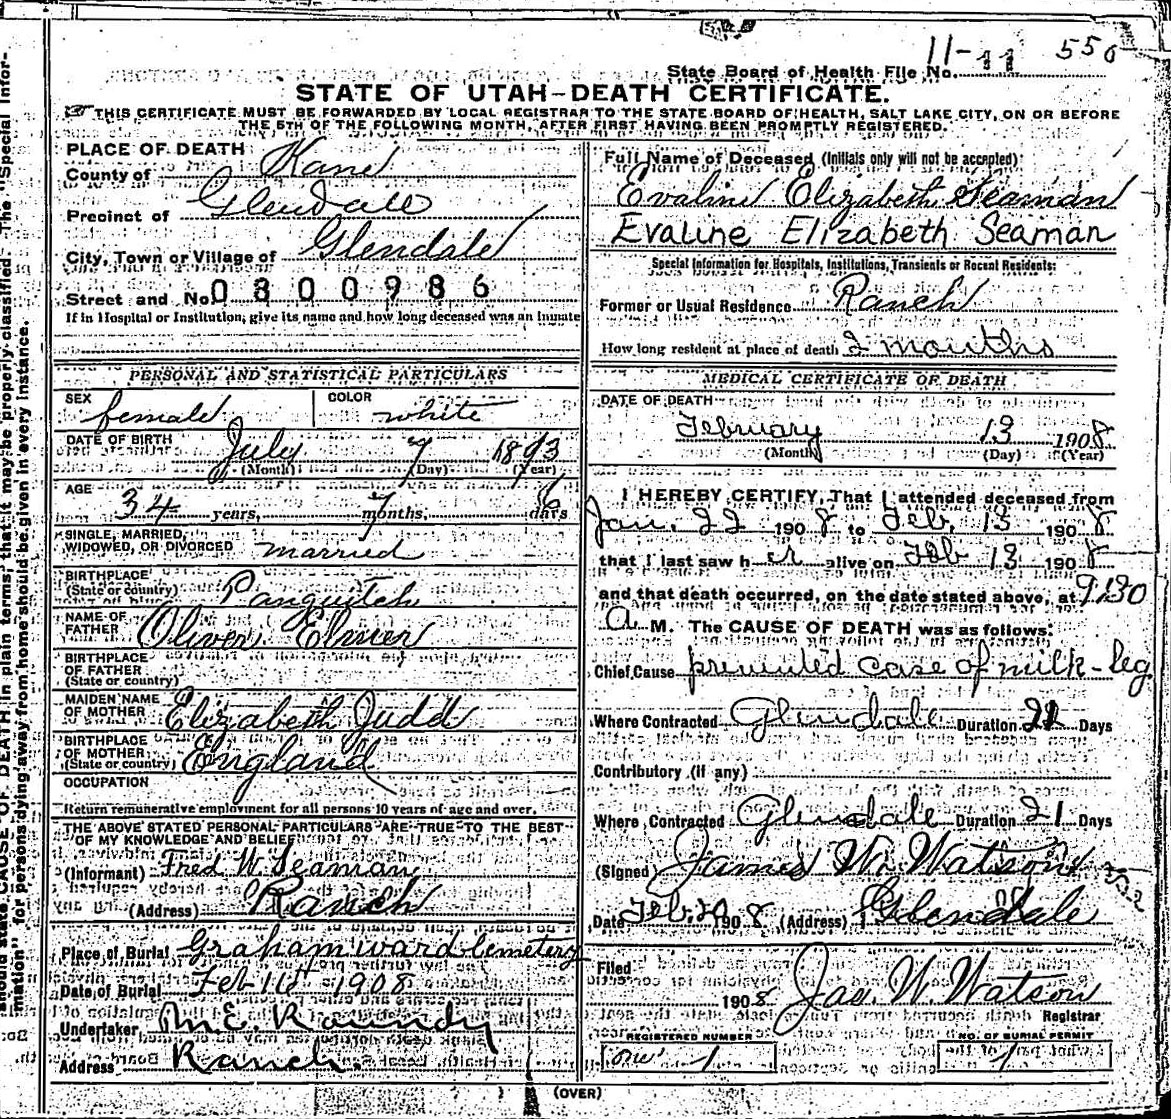 11-11 550
State Board of Health File No.
STATE OF UTAH—DEATH CERTIFICATE.
THIS CERTIFICATE MUST BE FORWARDED BY LOCAL REGISTRAR TO THE STATE BOARD OF HEALTH, SALT LAKE CITY, ON OR BEFORE
THE 5TH OF THE FOLLOWING MONTH, AFTER FIRST HAVING BEEN PROMPTLY REGISTERED.
PLACE OF DEATH
County of Kane
Precinct of Glendale
City, Town or Village of Glendale
Street and No. 0300986
If in Hospital or Institution, give its name and how long deceased was an inmate
PERSONAL AND STATISTICAL PARTICULARS
SEX female COLOR white
DATE OF BIRTH July 7 1893
(Month) (Day) (Year)
AGE 34 years, 7 months, 6 days
SINGLE, MARRIED,
WIDOWED, OR DIVORCED married
BIRTHPLACE
(State or country) Panguitch
NAME OF
FATHER Oliver Elmer
BIRTHPLACE
OF FATHER
(State or country)
MAIDEN NAME
OF MOTHER Elizabeth Judd
BIRTHPLACE
OF MOTHER
(State or country) England
OCCUPATION
Return remunerative employment for all persons 10 years of age and over.
THE ABOVE STATED PERSONAL PARTICULARS ARE TRUE TO THE BEST
OF MY KNOWLEDGE AND BELIEF
(Informant) Fred W. Seaman
(Address) Ranch
Place of Burial Graham ward Cemetery
Date of Burial Feb 1908
Undertaker M. E. Roundy
Address Ranch.
Full Name of Deceased (Initials only will not be accepted):
Evaline Elizabeth Seaman
Evaline Elizabeth Seaman
Special Information for Hospitals, Institutions, Transients or Recent Residents:
Former or Usual Residence Ranch
How long resident at place of death 2 months
MEDICAL CERTIFICATE OF DEATH
DATE OF DEATH
February 13 1908
(Month) (Day) (Year)
I HEREBY CERTIFY, That I attended deceased from
Jan. 22 1908 to Feb. 13 1908
that I last saw her alive on Feb 13 1908
and that death occurred, on the date stated above, at 9:30
A M. The CAUSE OF DEATH was as follows:
Chief Cause case of milk-leg
Where Contracted Glendale Duration 21 Days
Contributory (if any)
Where Contracted Glendale Duration 21 Days
(Signed) James W. Watson
Date Feb. 20 1908 (Address) Glendale
Filed
1908 Jas. W. Watson
Registrar
REGISTERED NUMBER NO. OF BURIAL PERMIT
one 1 1
(OVER)
should state CAUSE OF DEATH in plain terms, that it may be properly classified. The "Special Infor-
mation" for persons dying away from home should be given in every instance.